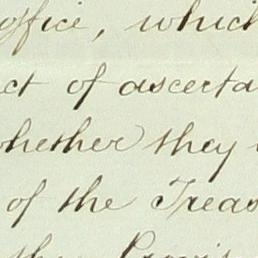 office, which
ct of ascerta
whether they
of the Treas
the